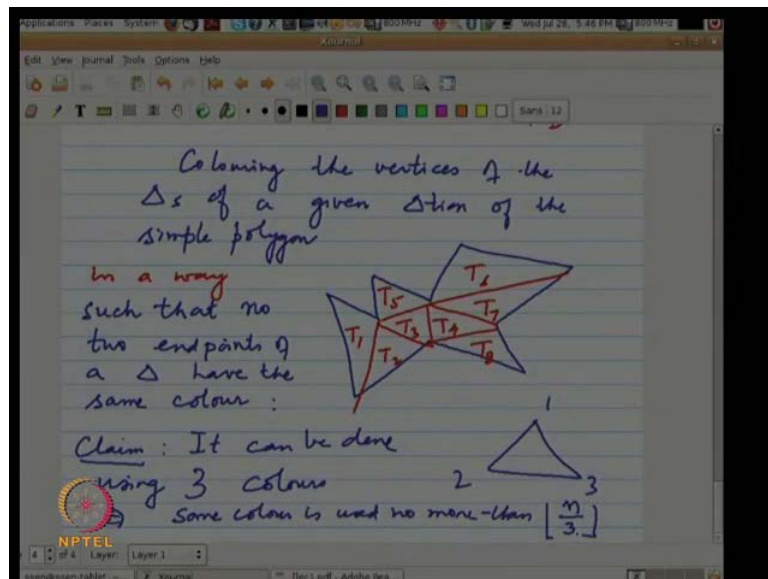 Applications Places System 800 MHz Wed Jul 28, 5:46 PM 800 MHz
Xournal
Edit View Journal Tools Options Help
Sans 12
Colouring the vertices of the
Δs of a given Δtion of the
simple polygon
in a way
such that no
two endpoints of
a Δ have the
same colour :
T1
T2
T3
T4
T5
T6
T7
T8
Claim : It can be done
using 3 colours
1
2
3
⇒ Some colour is used no more than ⌊n/3⌋
NPTEL
4 of 4 Layer: Layer 1